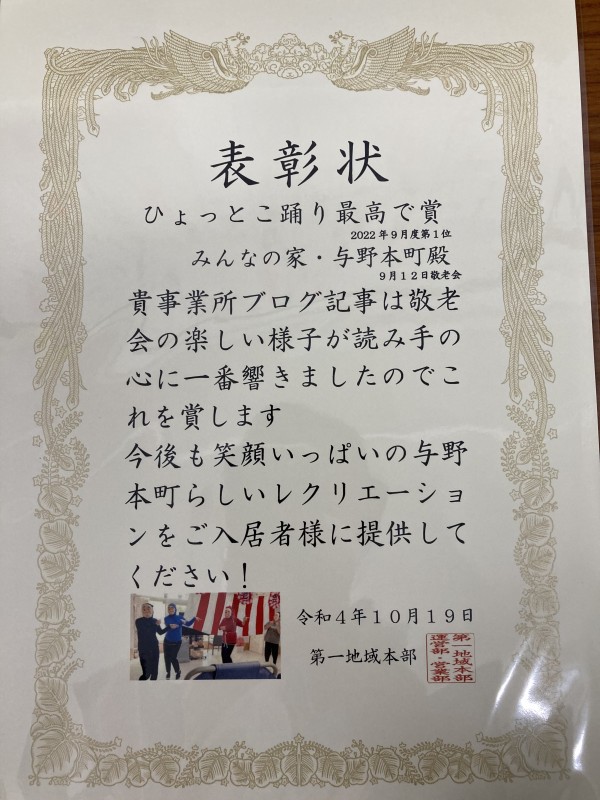 表彰状
ひょっとこ踊り最高で賞
2022年9月度第1位
みんなの家・与野本町殿
9月12日敬老会
貴事業所ブログ記事は敬老
会の楽しい様子が読み手の
心に一番響きましたのでこ
れを賞します
今後も笑顔いっぱいの与野
本町らしいレクリエーショ
ンをご入居者様に提供して
ください!
令和4年10月19日
第一地域本部
第一地域本部
運営部・営業部